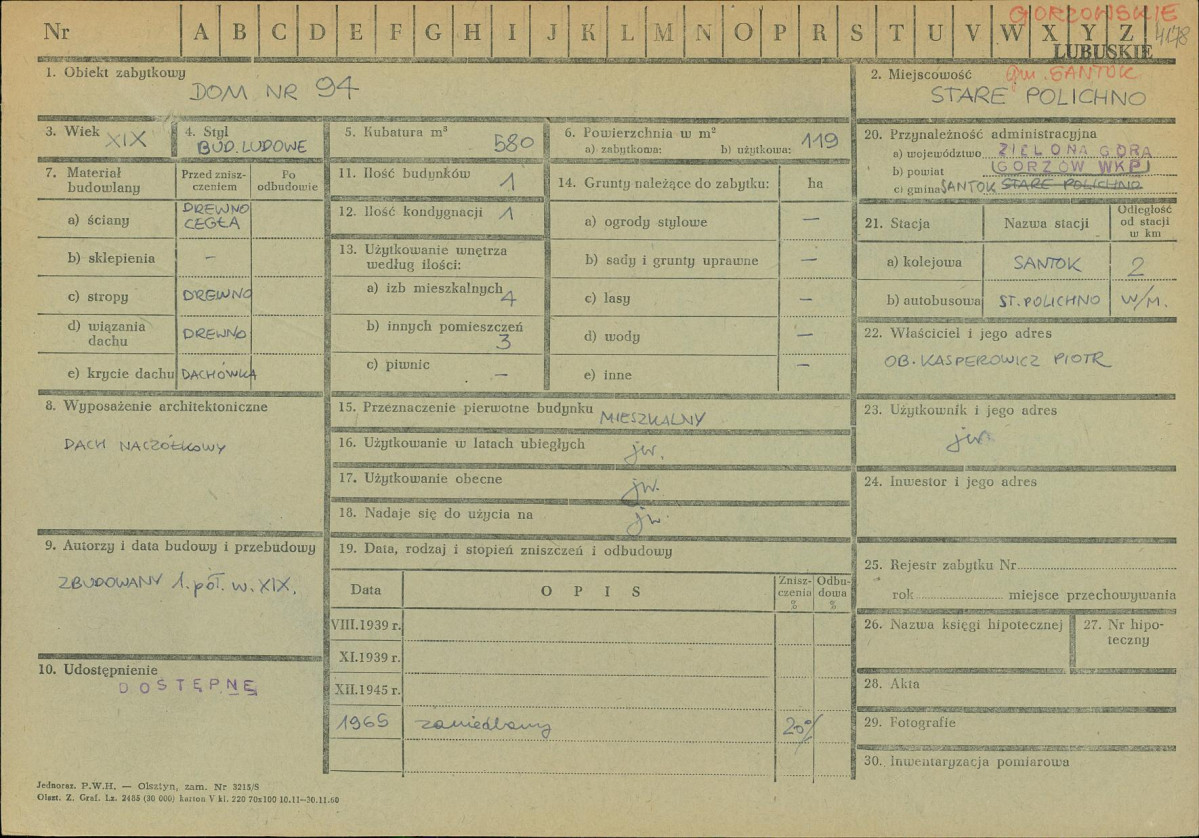 GORZOWSKIE
Nr A B C D E F G H I J K L M N O P R S T U V W X Y Z 4178
LUBUSKIE
1. Obiekt zabytkowy
DOM NR 94
2. Miejscowość gm. SANTOK
STARE POLICHNO
3. Wiek XIX
4. Styl
BUD. LUDOWE
5. Kubatura m³
580
6. Powierzchnia w m²
a) zabytkowa: b) użytkowa: 119
20. Przynależność administracyjna
a) województwo ZIELONA GÓRA
b) powiat (GORZÓW WKP)
c) gmina SANTOK STARE POLICHNO
7. Materiał budowlany
Przed zniszczeniem
Po odbudowie
a) ściany DREWNO CEGŁA
b) sklepienia –
c) stropy DREWNO
d) wiązania dachu DREWNO
e) krycie dachu DACHÓWKA
11. Ilość budynków 1
12. Ilość kondygnacji 1
13. Użytkowanie wnętrza
według ilości:
a) izb mieszkalnych 4
b) innych pomieszczeń
3
c) piwnic –
14. Grunty należące do zabytku: ha
a) ogrody stylowe –
b) sady i grunty uprawne –
c) lasy –
d) wody –
e) inne –
21. Stacja Nazwa stacji Odległość od stacji w km
a) kolejowa SANTOK 2
b) autobusowa ST. POLICHNO W/M.
22. Właściciel i jego adres
OB. KASPEROWICZ PIOTR
8. Wyposażenie architektoniczne
DACH NACZÓŁKOWY
15. Przeznaczenie pierwotne budynku
MIESZKALNY
16. Użytkowanie w latach ubiegłych jw.
17. Użytkowanie obecne jw.
18. Nadaje się do użycia na jw.
23. Użytkownik i jego adres
jw.
24. Inwestor i jego adres
9. Autorzy i data budowy i przebudowy
ZBUDOWANY 1. pół. w. XIX.
19. Data, rodzaj i stopień zniszczeń i odbudowy
Data OPIS Zniszczenia % Odbudowa %
VIII.1939 r.
XI.1939 r.
XII.1945 r.
1965 zaniedbany 20%
25. Rejestr zabytku Nr
rok miejsce przechowywania
26. Nazwa księgi hipotecznej
27. Nr hipoteczny
10. Udostępnienie
DOSTĘPNE
28. Akta
29. Fotografie
30. Inwentaryzacja pomiarowa
Jednoraz. P.W.H. — Olsztyn, zam. Nr 3215/S
Olszt. Z. Graf. Lz. 2465 (30 000) karton V kl. 220 70x100 10.11–30.11.60